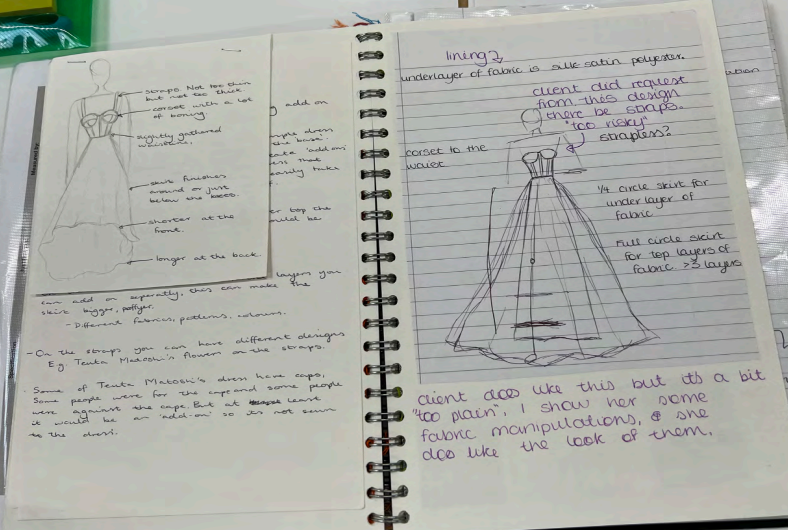 straps. Not too thin
but not too thick
corset with a lot
of boning
slightly gathered
skirt finishes
around or just
below the
shorter at the
front.
longer at the back
add on
dress
the base.
take 'add on'
that
easily take
top the
could be
layers you
can add on seperatly, this can make the
skirt bigger, poffyer.
- Different fabrics, patterns, colours.
- On the straps you can have different designs
E.g. Teuta Matoshi's flowers on the straps.
Some of Teuta Matoshi's dress have caps,
Some people were for the cape and some people
were against the cape. But at least
it would be an 'add-on' so its not sewn
to the dress.
lining?
underlayer of fabric is silk satin polyester.
client did request
from this design
there be straps.
"too risky"
strapless?
corset to the
waist
1/4 circle skirt for
under layer of
fabric
Full circle skirt
for top layers of
fabric >3 layers
client does like this but its a bit
"too plain", I show her some
fabric manipulations, & she
does like the look of them.